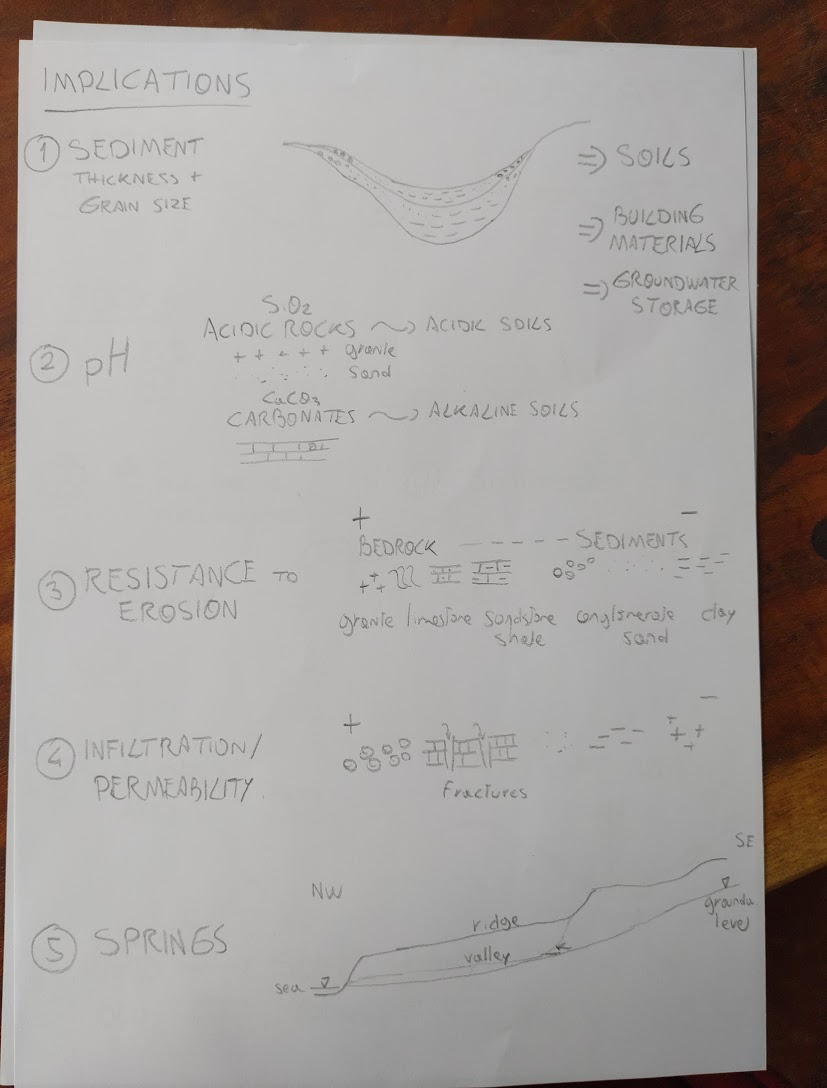 IMPLICATIONS
① SEDIMENT
THICKNESS +
GRAIN SIZE
⇒ SOILS
⇒ BUILDING
MATERIALS
⇒ GROUNDWATER
STORAGE
② pH
SiO2
ACIDIC ROCKS ~> ACIDIC SOILS
+ + + + + granite
sand
CaCO3
CARBONATES ~> ALKALINE SOILS
③ RESISTANCE TO
EROSION
+ −
BEDROCK ----- SEDIMENTS
granite limestone sandstone conglomerate clay
shale sand
④ INFILTRATION/
PERMEABILITY.
+ −
Fractures
⑤ SPRINGS
NW
SE
ridge
valley
sea
groundw
level